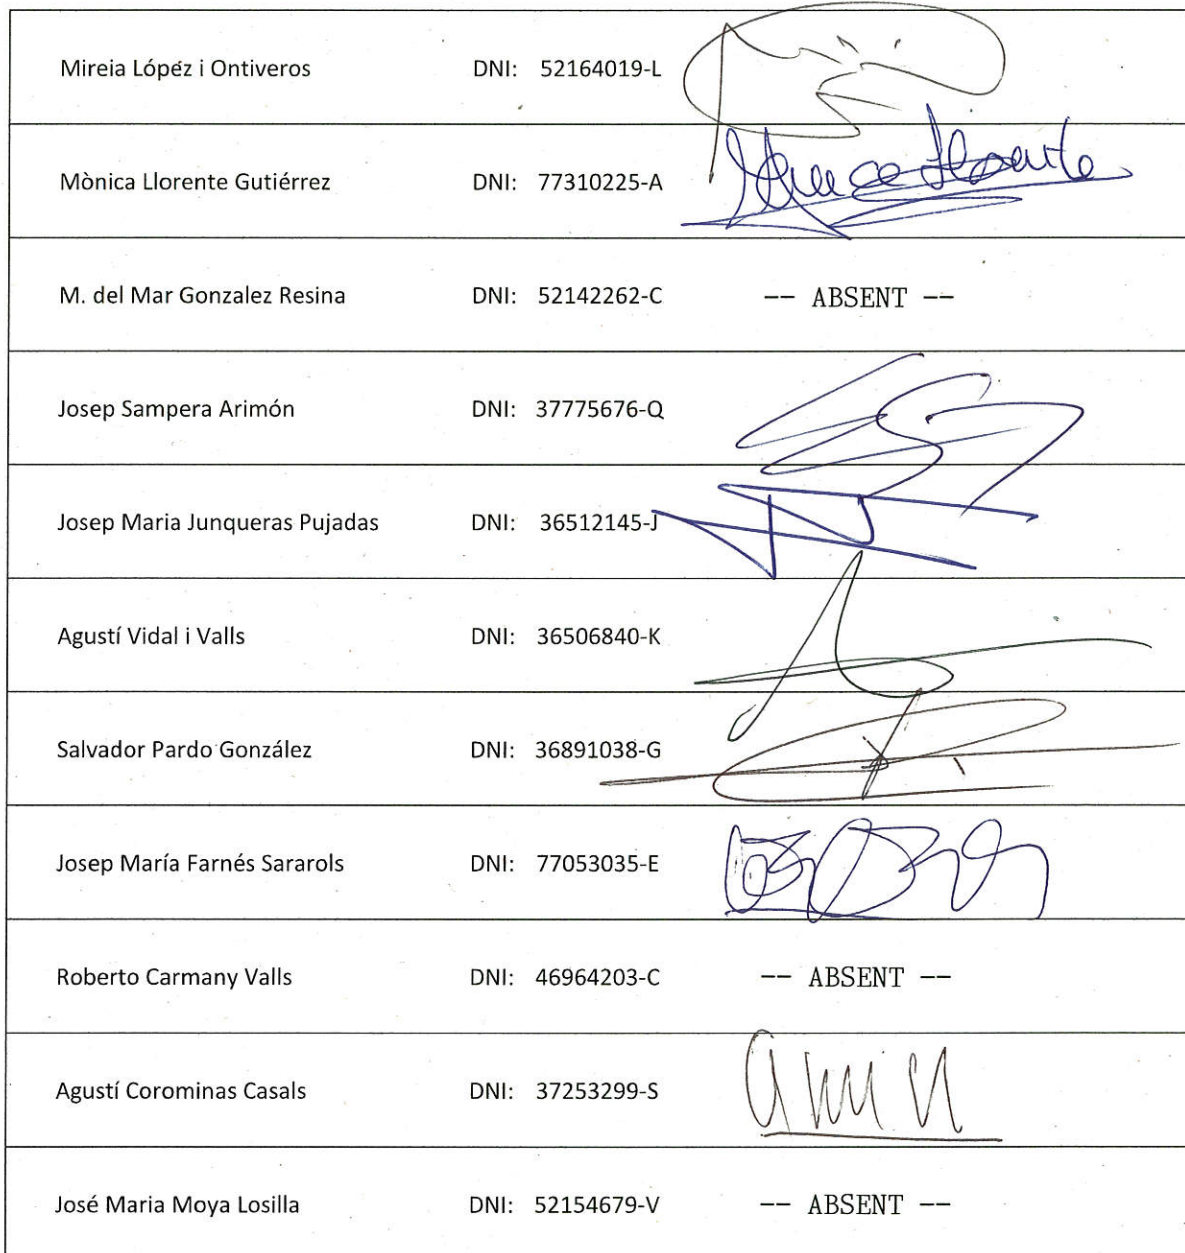 Mireia López i Ontiveros DNI: 52164019-L
Mònica Llorente Gutiérrez DNI: 77310225-A
M. del Mar Gonzalez Resina DNI: 52142262-C -- ABSENT --
Josep Sampera Arimón DNI: 37775676-Q
Josep Maria Junqueras Pujadas DNI: 36512145-J
Agustí Vidal i Valls DNI: 36506840-K
Salvador Pardo González DNI: 36891038-G
Josep María Farnés Sararols DNI: 77053035-E
Roberto Carmany Valls DNI: 46964203-C -- ABSENT --
Agustí Corominas Casals DNI: 37253299-S
José Maria Moya Losilla DNI: 52154679-V -- ABSENT --